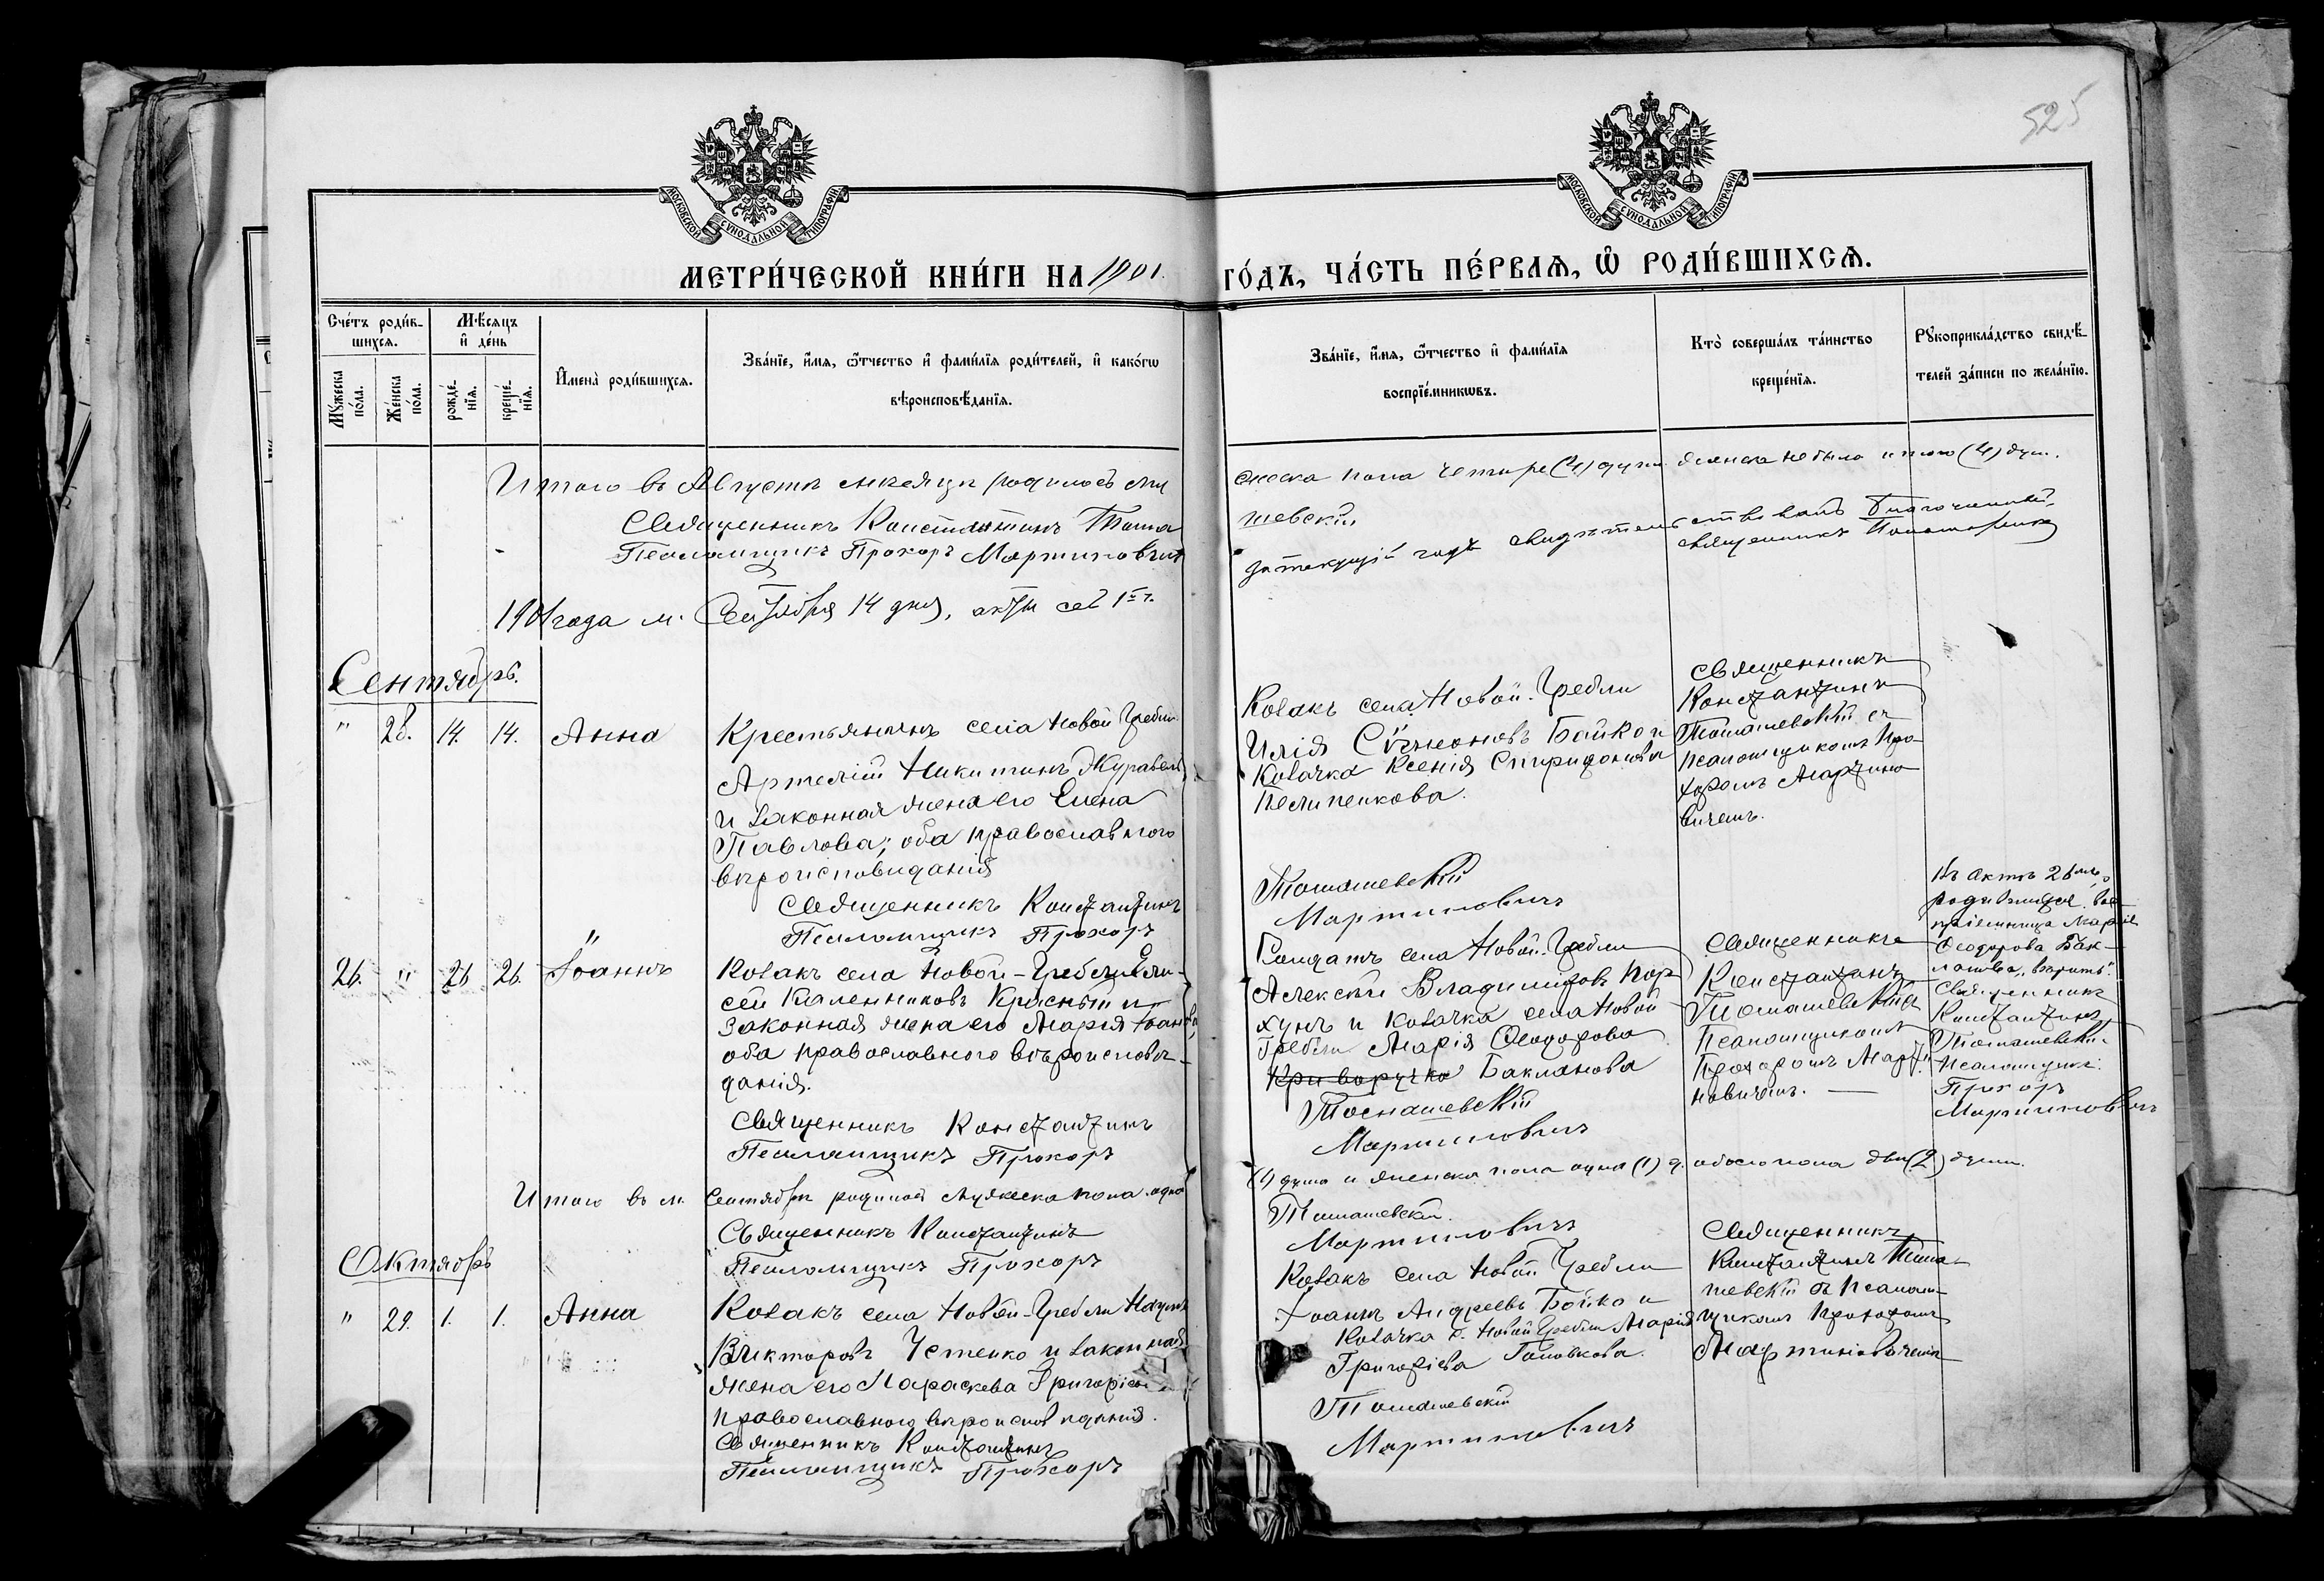 525
МОСКОВСКОЙ СѴНОДАЛЬНОЙ ТИПОГРАФІИ
МОСКОВСКОЙ СѴНОДАЛЬНОЙ ТИПОГРАФІИ
МЕТРИ́ЧЕСКОЙ КНИ́ГИ НА 1901. ГО́ДЪ, ЧА́СТЬ ПЕ́РВАѦ, Ѡ҆ РОДИ́ВШИХСѦ.
Сче́тъ роди́в-
шихся.
Мѣ́сяцъ
и҆ де́нь
Мꙋ́жеска по́ла.
Же́нска по́ла.
рожде́-нїя.
креще́-нїя.
И҆мена̀ роди́вшихся.
Зва́нїе, и҆́мя, ѻ҆́тчество и҆ фами́лїя роди́телей, и҆ како́гѡ
вѣроисповѣ́данїя.
Зва́нїе, и҆́мя, ѻ҆́тчество и҆ фами́лїя
воспрїе́мникѡвъ.
Кто̀ соверша́лъ та́инство
креще́нїя.
Рꙋкоприкла́дство свидѣ́-
телей за́писи по жела́нїю.
Итого въ Августѣ мѣсяцѣ родилось му
жеска пола четыре (4) души женска не было итого (4) душ.
Священникъ Константинъ Тома
шевскій
Псаломщикъ Прохоръ Мартиновичъ
За текущій годъ свидѣтельствовалъ благочинный,
священникъ
1901 года м. Сентября 14 дня,
Сентябрь.
" 28. 14. 14. Анна
Крестьянинъ села Новой Гребли
Артемій Никитинъ Журавель
и законная жена его Елена
Павлова; оба православного
вѣроисповиданія
Священникъ Константинъ
Псаломщикъ Прохоръ
Козакъ села Новой-Гребли
Илія Сѵмеоновъ Бойко и
Козачка Ксенія Спиридонова
Пелипенкова.
Томашевскій
Мартиновичъ
Священникъ
Константинъ
Томашевскій съ
псаломщикомъ Про-
хоромъ Мартино
вичемъ.
26. " 26 26. Іоаннъ
Козакъ села Новой-Гребли Ели-
сей Каленниковъ Красный и
законная жена его Марія Іоанова,
оба православного вѣроисповѣ-
данія.
Священникъ Константинъ
Псаломщикъ Прохоръ
Солдатъ села Новой-Гребли
Алексѣй Владиміровъ Кор
хунъ и козачка села Новой
Гребли Марія Ѳеодорова
Криворучко Бакланова
Томашевскій
Мартиновичъ
Священникъ
Константинъ
Томашевскій съ
Псаломщикомъ
Прохоромъ Марти
новичемъ.
Въ актѣ 26 мъ,
родившихся вос
пріемница Марія
Ѳеодорова Бак-
ланова
Священникъ
Константинъ
Томашевскій
Псаломщикъ
Прохоръ
Мартиновичъ
Итого въ м. Сентябрѣ родилось мужеска пола одна
(1) душа и женска пола одна (1) д. обоего пола двѣ (2) души.
Священникъ Константинъ
Томашевскій.
Псаломщикъ Прохоръ
Мартиновичъ
Октябрь
" 29. 1. 1. Анна
Козакъ села Новой-Гребли Наумъ
Викторовъ Устенко и законная
жена его Параскева Григоріева
православного вѣроисповиданія.
Священникъ Константинъ
Псаломщикъ Прохоръ
Козакъ села Новой Гребли
Іоаннъ Андреевъ Бойко и
Козачка с. Новой Гребли Марія
Григоріева Головкова.
Томашевскій
Мартиновичъ
Священникъ
Константинъ Тома-
шевскій съ псалом-
щикомъ Прохоромъ
Мартиновичемъ